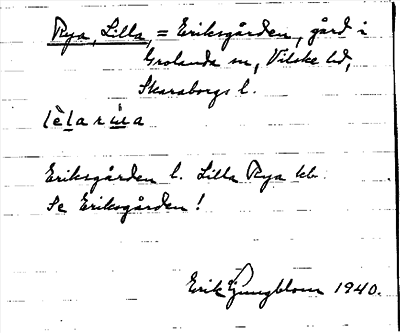 Rya, Lilla, = Eriksgården, gård i
Grolanda sn, Vilske hd,
Skaraborgs l.
Eriksgården l. Lilla Rya kb.
Se Eriksgården!
Erik Ljungblom 1940.